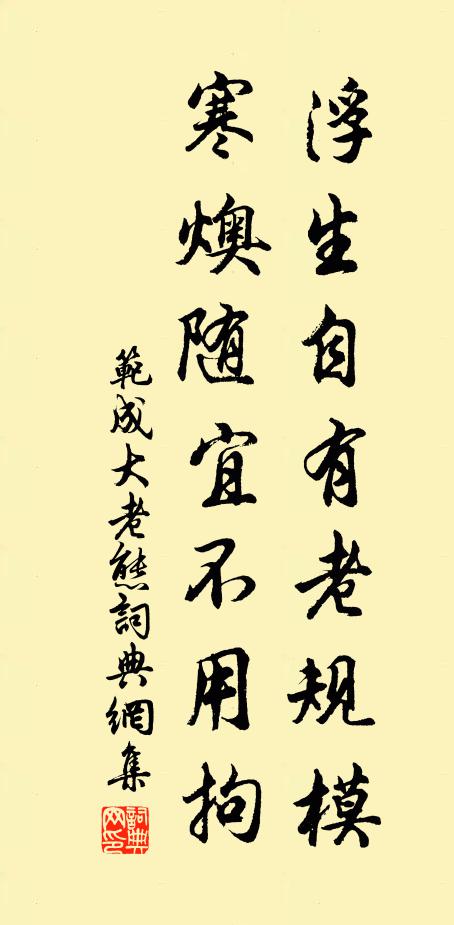 浮生自有老規模
寒燠随宜不用拘
範成大老態詞典網集
詞典網印